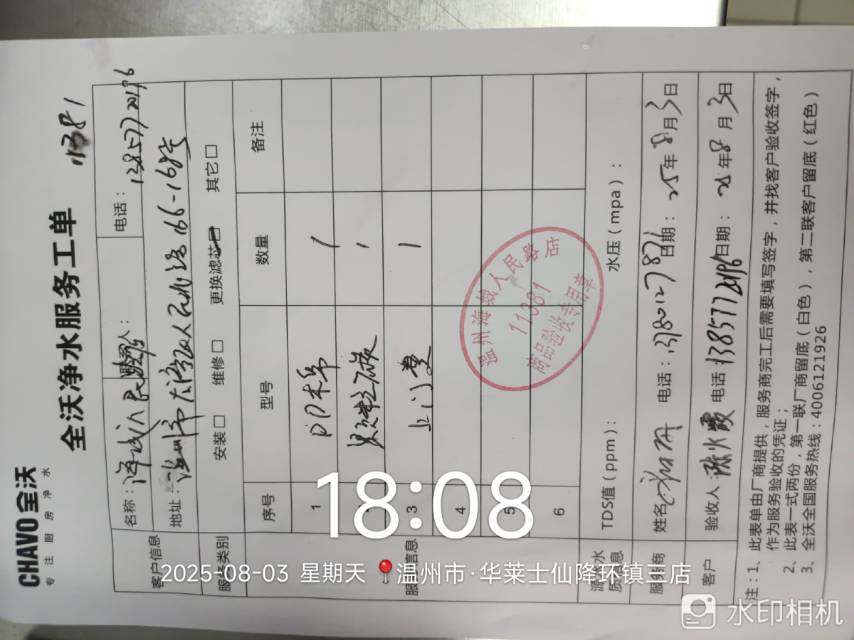 CHAVO 全沃
专注厨房净水
全沃净水服务工单
11381
客户信息
名称：海城人民路店
联系人：
电话：13857720196
地址：温州市龙湾区人民路166-168号
服务类别
安装□ 维修□ 更换滤芯 其它□
序号 型号 数量 备注
1 1
1
3 上门费 1
4
5
6
温州海城人民路店
11381
商品验收专用章
TDS值（ppm）： 水压（mpa）：
服务商
姓名 电话：13780127871 日期：25年8月3日
客户
验收人 电话 13857720196 日期：25年8月3日
注：1、此表单由厂商提供，服务商完工后需要填写签字，并找客户验收签字，
作为服务验收的凭证；
2、此表一式两份，第一联厂商留底（白色），第二联客户留底（红色）
3、全沃全国服务热线：4006121926
18:08
2025-08-03 星期天 温州市·华莱士仙降环镇二店
水印相机